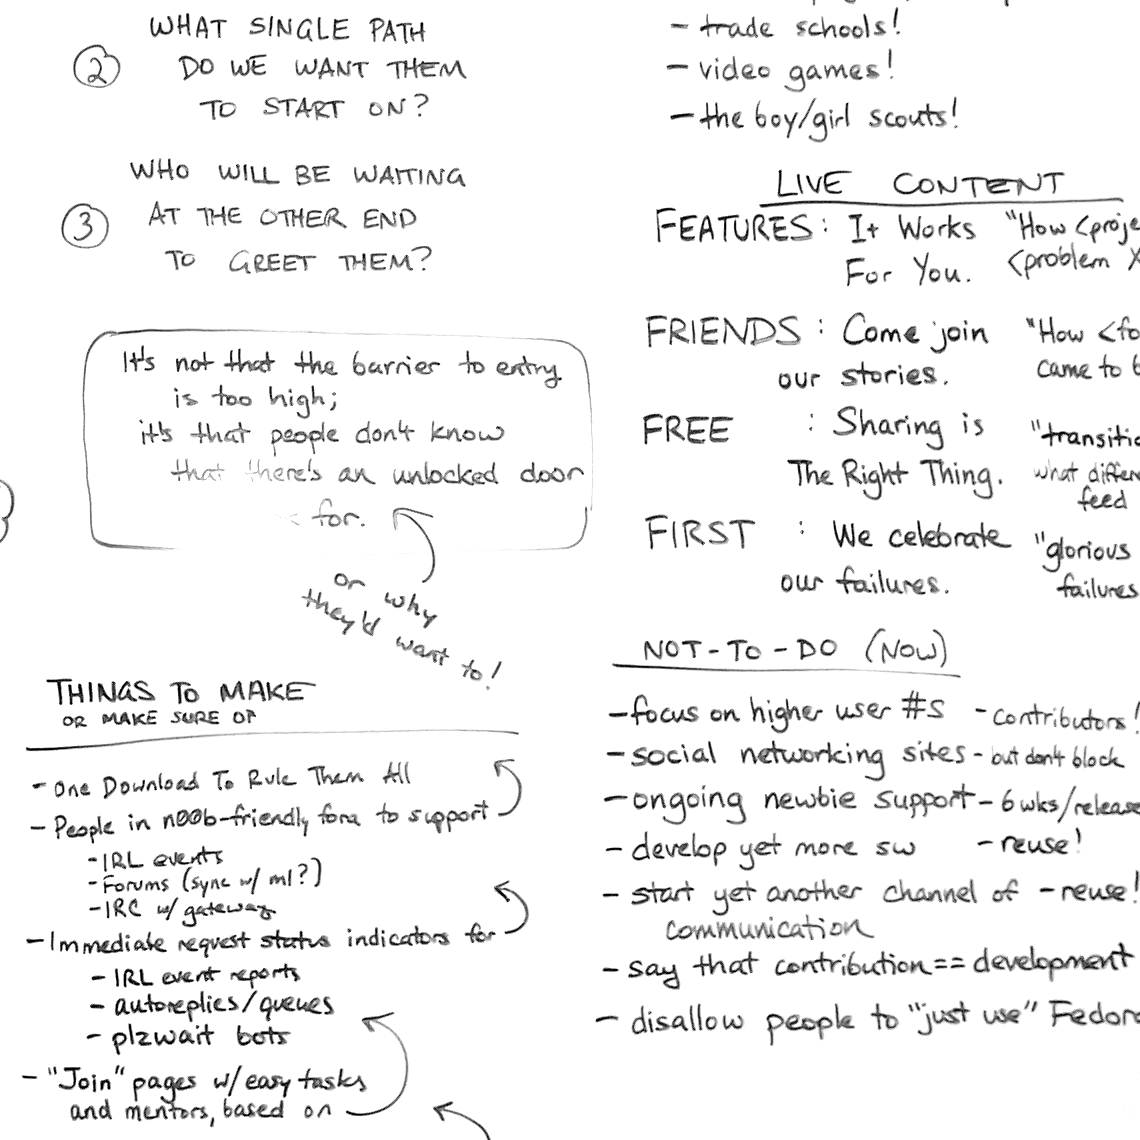 WHAT SINGLE PATH
② DO WE WANT THEM
TO START ON?
WHO WILL BE WAITING
③ AT THE OTHER END
TO GREET THEM?
It's not that the barrier to entry
is too high;
it's that people don't know
that there's an unlocked door
for.
or why
they'd want to!
THINGS TO MAKE
OR MAKE SURE OF
- One Download To Rule Them All
- People in n00b-friendly fora to support
- IRL events
- Forums (sync w/ ml?)
- IRC w/ gateway
- Immediate request status indicators for
- IRL event reports
- autoreplies/queues
- plzwait bots
- "Join" pages w/ easy tasks
and mentors, based on
- trade schools!
- video games!
- the boy/girl scouts!
LIVE CONTENT
FEATURES: It Works "How <proje
For You. <problem X
FRIENDS: Come join "How <fo
our stories. came to b
FREE : Sharing is "transitio
The Right Thing. what differen
feed
FIRST : We celebrate "glorious
our failures. failures
NOT-TO-DO (NOW)
- focus on higher user #s - contributors!
- social networking sites - but don't block
- ongoing newbie support - 6wks/release
- develop yet more sw - reuse!
- start yet another channel of - reuse!
communication
- say that contribution == development
- disallow people to "just use" Fedora